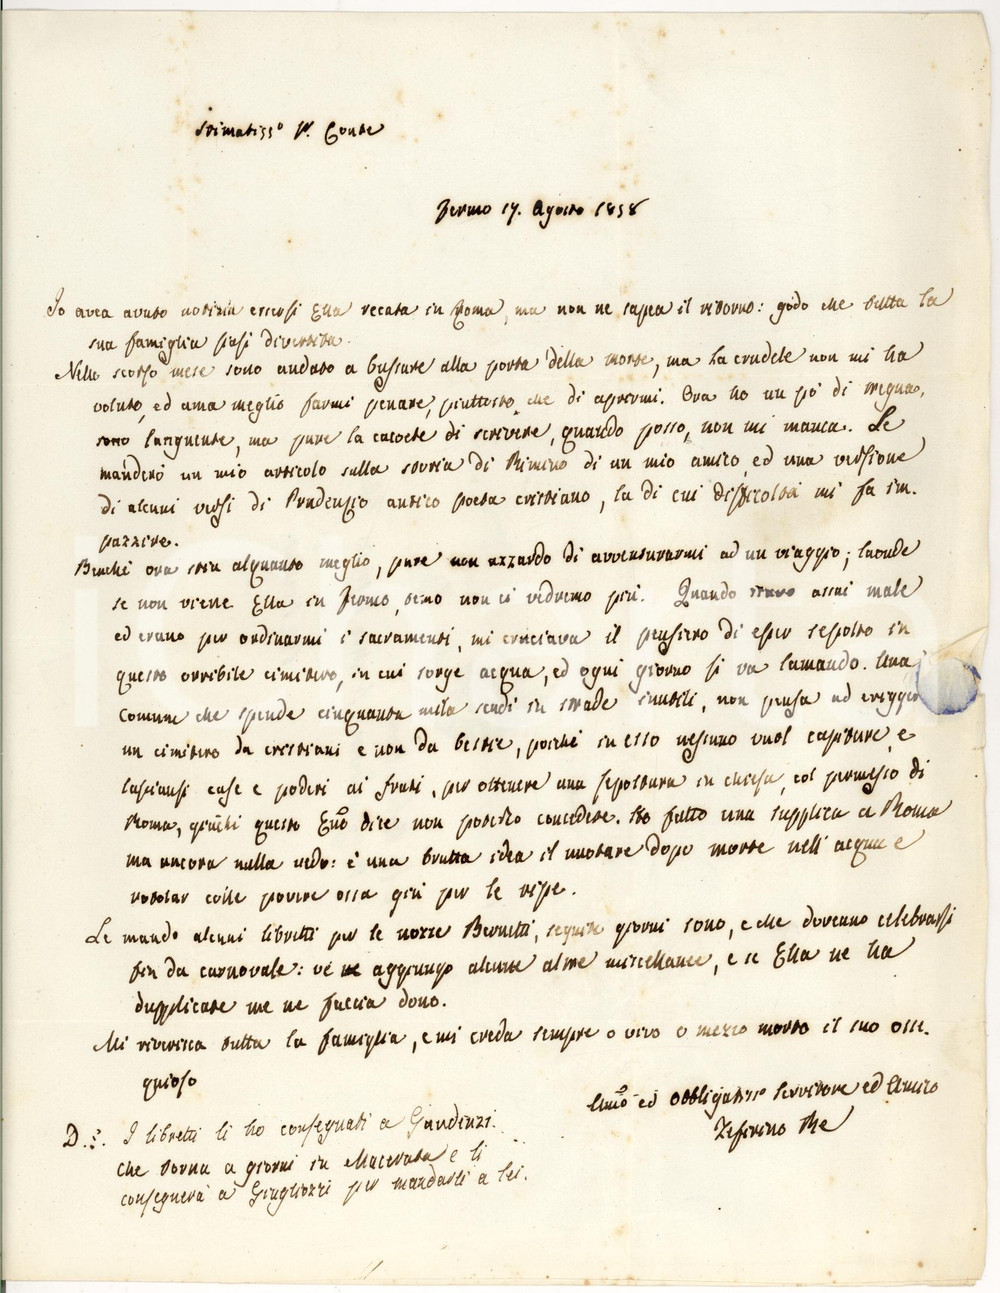 Stimatiss.º Sr. Conte
Fermo 17. Agosto 1858
Io avea avuto notizia essersi Ella recata in Roma, ma non ne sapea il ritorno: godo che tutta la
sua famiglia siasi divertita.
Nello scorso mese sono andato a bussare alla porta della morte, ma la crudele non mi ha
voluto, ed ama meglio farmi penare, piuttosto che di aprirmi. Ora ho un po' di tregua,
sono languente, ma pure la cacoete di scrivere, quando posso, non mi manca. Le
manderò un mio articolo sulla storia di Rimino di un mio amico, ed una versione
di alcuni versi di Prudenzio antico poeta cristiano, la di cui difficoltà mi fa im-
pazzire.
Benchè ora stia alquanto meglio, pure non azzardo di avventurarmi ad un viaggio; laonde
se non viene Ella in Fermo, temo non ci vedremo più. Quando stavo assai male
ed erano per ordinarmi i sacramenti, mi cruciava il pensiero di esser sepolto in
questo orribile cimitero, in cui sorge acqua, ed ogni giorno si va lamando. Una
Comune che spende cinquanta mila scudi in strade inutili, non pensa ad erigger
un cimitero da cristiani e non da bestie, poichè in esso nessuno vuol capitare, e
lasciansi case e poderi ai frati, per ottenere una sepoltura in chiesa, col permesso di
Roma, giacchè questo Emo dice non poterlo concedere. Ho fatto una supplica a Roma
ma ancora nulla vedo: è una brutta idea il nuotare dopo morte nell'acqua e
rotolar colle povere ossa giù per le ripe.
Le mando alcuni libretti per le nozze Bernetti, seguite giorni sono, e che doveano celebrarsi
fin da carnovale: vi aggiungo alcune altre miscellanee, e se Ella ne ha
dupplicate me ne faccia dono.
Mi riverisca tutta la famiglia, e mi creda sempre o vivo o mezzo morto il suo osse-
quioso
Amo ed Obbligatiss.º Servitore ed Amico
Zefirino Re
D.S. I libretti li ho consegnati a Gaudenzi
che torna a giorni in Macerata e li
consegnerà a Giugliozzi per mandarli a lei.